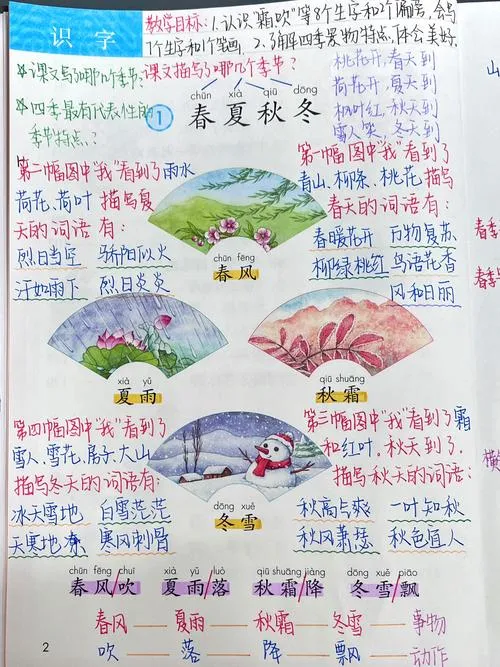 识字
教学目标:1.认识"霜、吹"等8个生字和2个偏旁,会写
7个生字和1个笔画。2.了解四季景物特点,体会美好.
课文写了哪几个季节?
课文描写了哪几个季节?
四季最有代表性的
季节特点.?
桃花开,春天到
荷花开,夏天到
枫叶红,秋天到
雪人笑,冬天到
chūn xià qiū dōng
1 春夏秋冬
第二幅图中"我"看到了雨水
荷花、荷叶 描写夏
天的词语有:
烈日当空 骄阳似火
汗如雨下 烈日炎炎
第一幅图中"我"看到了
青山、柳条、桃花 描写
春天的词语有:
春暖花开 万物复苏
柳绿桃红 鸟语花香
风和日丽
chūn fēng
春风
xià yǔ
夏雨
qiū shuāng
秋霜
第四幅图中"我"看到了
雪人、雪花、房子、大山
描写冬天的词语有:
冰天雪地 白雪茫茫
天寒地冻 寒风刺骨
第三幅图中"我"看到了霜
和红叶,秋天到了.
描写秋天的词语:
秋高气爽 一叶知秋
秋风萧瑟 秋色宜人
dōng xuě
冬雪
chūn fēng chuī xià yǔ luò qiū shuāng jiàng dōng xuě piāo
春风/吹 夏雨/落 秋霜/降 冬雪/飘
春风 — 夏雨 — 秋霜 — 冬雪 — 事物
吹 — 落 — 降 — 飘 — 动作
2